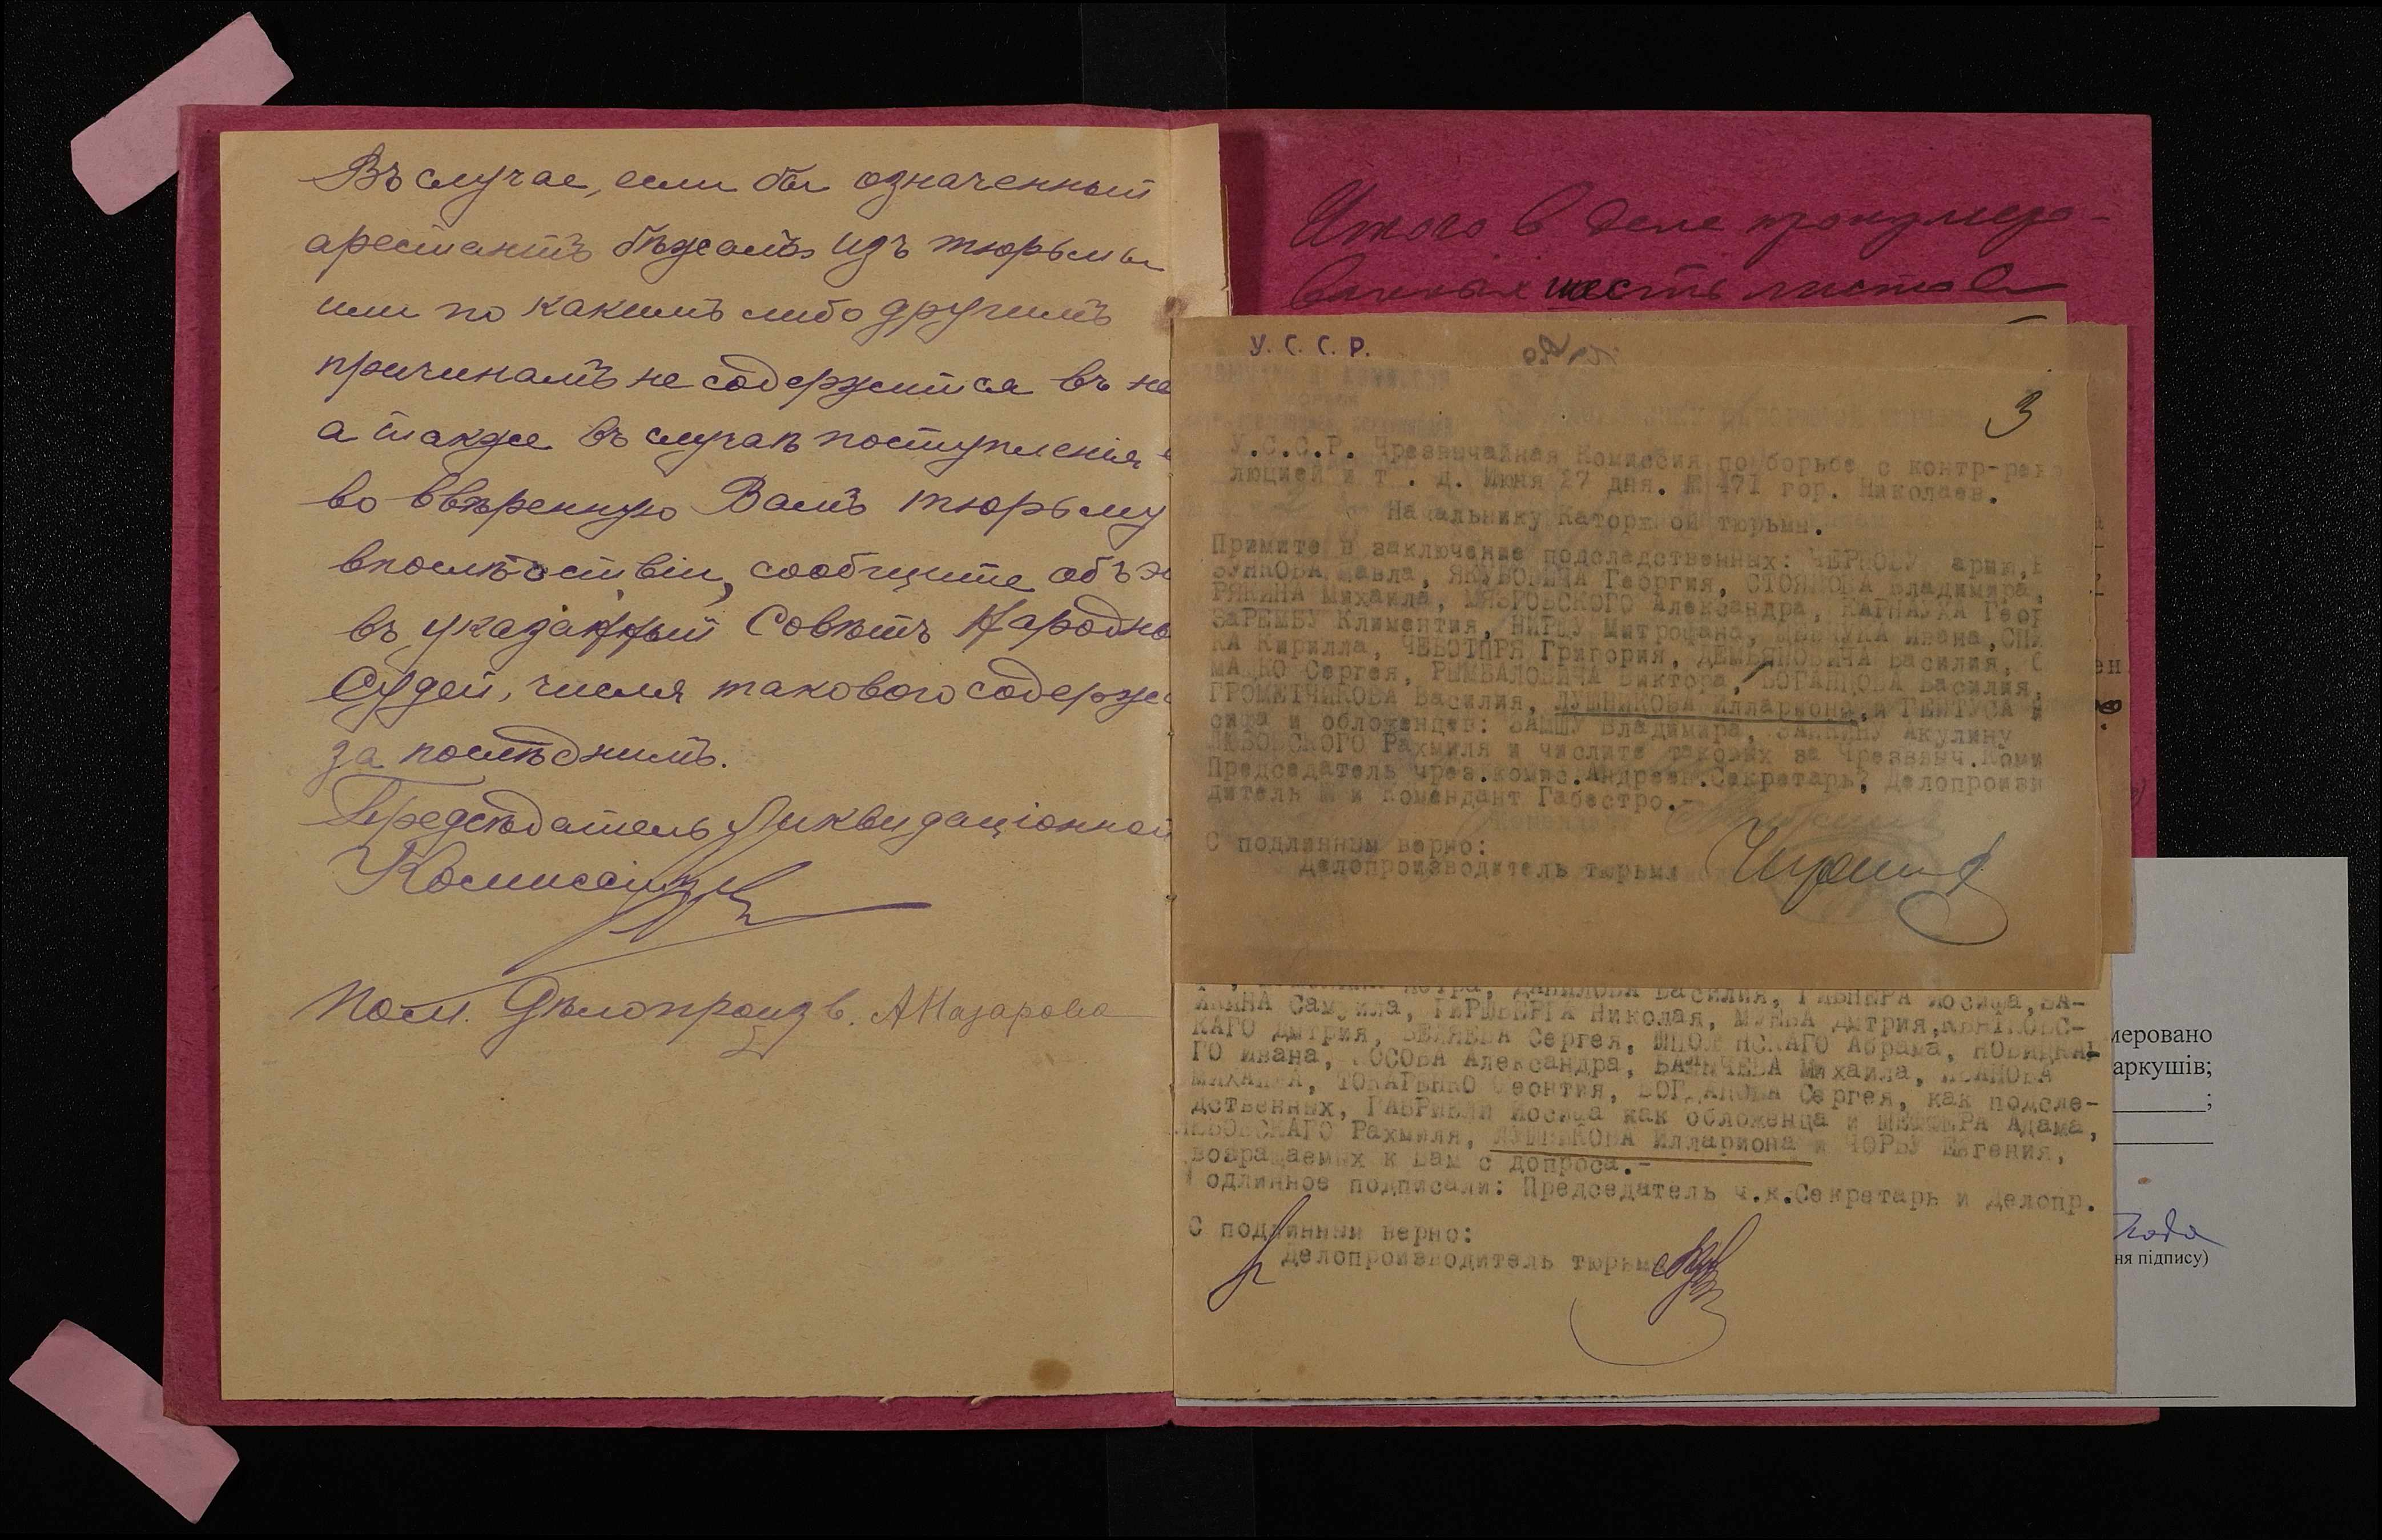 Въ случае, если бы означенный
арестантъ бѣжалъ изъ тюрьмы
или по какимъ либо другимъ
причинамъ не содержится въ не
а также въ случаѣ поступленія
во ввѣренную Вамъ тюрьму
впослѣдствіи, сообщите объ э
въ указанный Совѣтъ Народны
Судей, числя такового содерж
за послѣднимъ.
Предсѣдатель Ликвидаціонной
Комиссіи
Пом. Дѣлопроизв. АНазарова
Итого в деле пронумеро-
ванных шесть листов
У. С. С. Р.
3
У.С.С.Р. Чрезвычайная Комиссия по борьбе с контр-рев
люцией и т . д. Июня 27 дня. № 471 гор. Николаев.
Начальнику Каторж ой тюрьмы.
Примите в заключение подследственных: ЧЕРНОВУ арию,
ЗУНКОВА Павла, ЯКУБОВИЧА Георгия, СТОЯНОВА Владимира,
РЯКИНА Михаила, МЯЗРОВСКОГО Александра, КАРНАУХА Геор
ЗАРЕМБУ Климентия, НИРЦУ Митрофана, Ивана,
КА Кирилла, ЧЕБОТАРЯ Григория, ДЕМЬЯНОВИЧА Василия,
МАЦКО Сергея, РЫМВАЛОВИЧА Виктора, БОГАНЦОВА Василия,
ГРОМЕТЧИКОВА Василия, ДУШНИКОВА Иллариона, и ГЕНТУСА И
сифа и обложенцев: ЗАМШУ Владимира, Акулину
ЛЮБОВСКОГО Рахмиля и числите таковых за Чрезввыч.Коми
Председатель чрез.комис.Андреев.Секретарь, Делопроизв
дитель М и Комендант Габестро.-
С подлинным верно:
Делопроизводитель тюрьмы
етра, ДАНИЛОВА Василия, ГИБНЕРА Иосифа,ЗА-
Самуила, ГИРШБЕРГА Николая, Дмтрия,
КАГО Дмтрия, БЕЛЯЕВА Сергея, ШПОЛ НСКАГО Абрама, НОВИЦКА
ГО Ивана, ОСОВА Александра, БАЛЫЧЕВА Михаила, ИВАНОВА
МИХАИЛА, ТОКАРЕНКО Леонтия, БОГДАНОВА Сергея, как подсле-
дственных, ГАВРИЕЛИ Иосифа как обложенца и ШЕФФЕРА Адама,
ЛЮБОВСКАГО Рахмиля, ДУШНИКОВА Иллариона и ЧОРБУ Евгения,
возращаемых к Вам с допроса.-
одлинное подписали: Председатель ч.к.Секретарь и Делопр.
С подлинным верно:
Делопроизводитель тюрьмы
меровано
аркушів;
ня підпису)